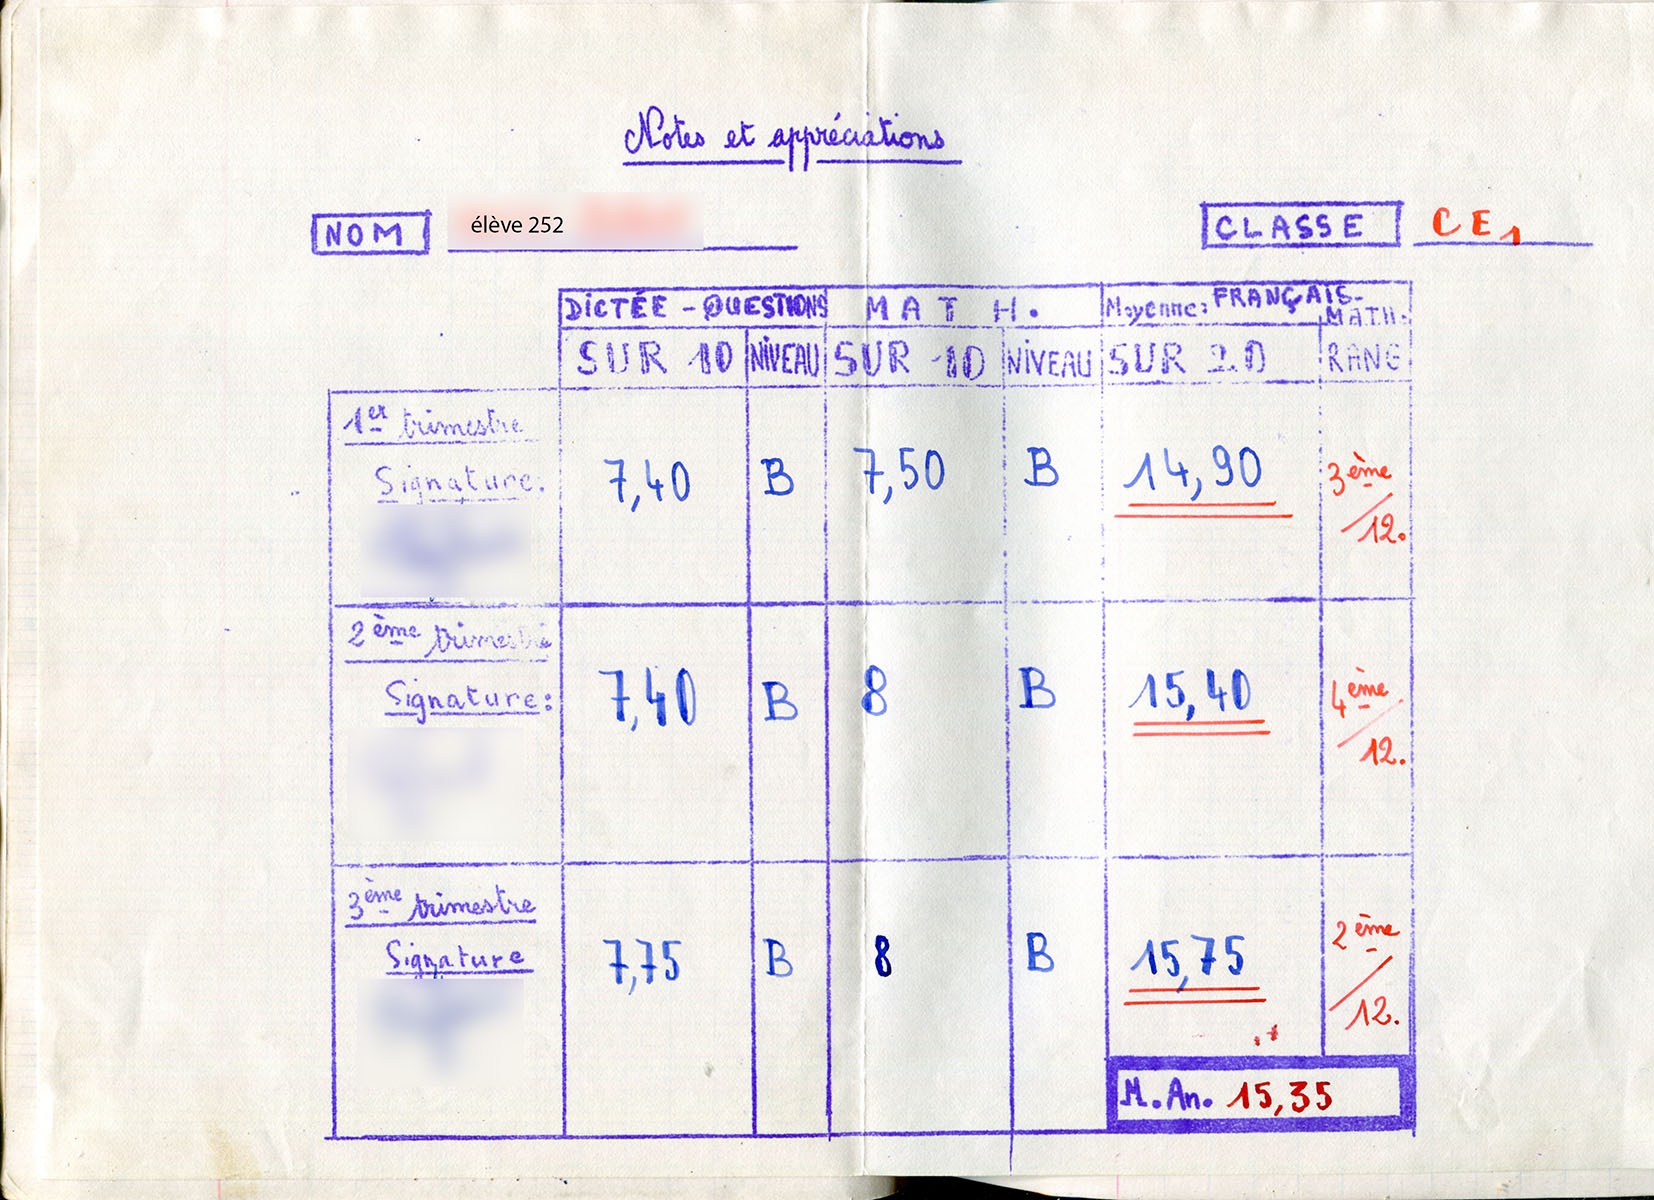 Notes et appréciations
NOM élève 252 CLASSE CE1
DICTÉE - QUESTIONS MATH. Moyenne: FRANÇAIS-MATH.
SUR 10 NIVEAU SUR 10 NIVEAU SUR 20 RANG
1er trimestre
Signature: 7,40 B 7,50 B 14,90 3ème/12.
2ème trimestre
Signature: 7,40 B 8 B 15,40 4ème/12.
3ème trimestre
Signature 7,75 B 8 B 15,75 2ème/12.
M. An. 15,35